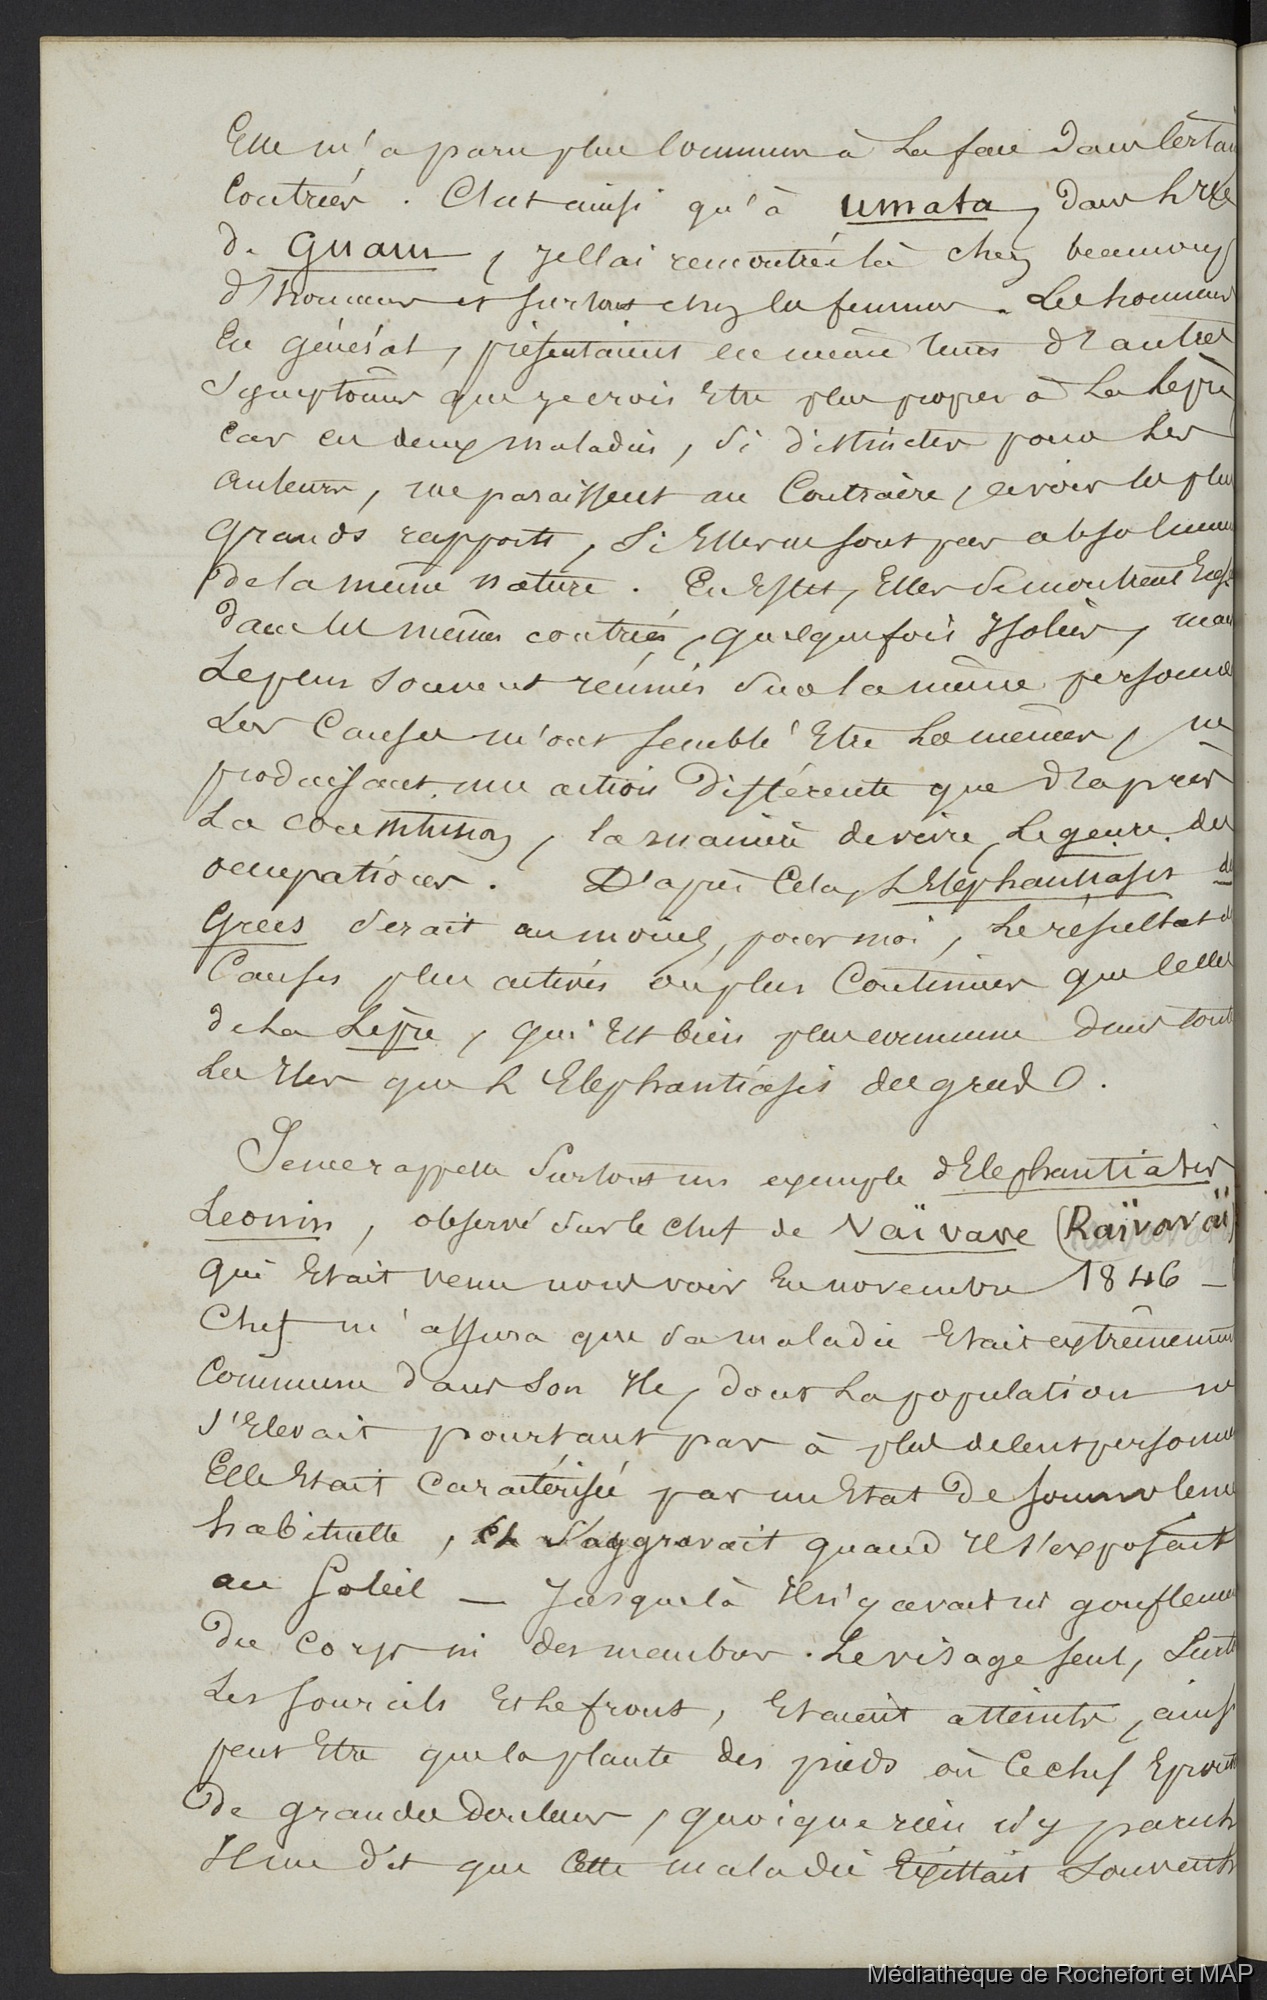 Elle m'a paru plus commune à la face dans certai
contrées. C'est ainsi qu'à umata, dans l'Ile
de Guam, je l'ai rencontrée là chez beaucoup
d'hommes et surtout chez les femmes. Les hommes
En général, présentaient en même tems d'autres
Symptômes que je crois Etre plus propres à La lèpre
car ces deux maladies, si distinctes pour Les
auteurs, me paraissent au Contraire, avoir les plus
grands rapports, Si Elles ne sont pas absolument
de la même nature. En Effet, Elles se montrent
dans les mêmes contrées, quelquefois Isolées, mais
Le plus souvent réunies sur la même personne
Les Causes m'ont semblé Etre Les mêmes, ne
produisant une action différente que d'après
La constitution, la manière de vivre, Le genre des
occupations. D'après Cela, L'Eléphantiasis des
Grecs serait au moins, pour moi, Le résultat de
Causes plus actives ou plus Continues que celles
de La Lèpre, qui Est bien plus commune dans tout
Les Iles que L'Elephantiasis des grecs.
Je me rappelle Surtout un exemple d'Elephantiasis
Leonin, observé sur le chef de Vaïvave (Raïvavaï)
qui Etait venu nous voir En novembre 1846 _
Chef m'assura que sa maladie Etait extrêmement
Commune dans Son Ile, dont La population ne
s'Elevait pourtant pas à plus de Cent personnes
Elle Etait Caractérisée par un Etat de somnolence
habituelle, et s'aggravait quand Il s'exposait
au Soleil _ Jusque là Il n'y avait ni gonflement
du corps ni des membres. Le visage seul, Surt
Les Sourcils Et Le front, Etaient atteints, ainsi
peut Etre que la plante des pieds où Ce chef Eprouv
de grandes douleurs, quoique rien n'y parut
Il me dit que Cette maladie Existait Souvent
Médiathèque de Rochefort et MAP